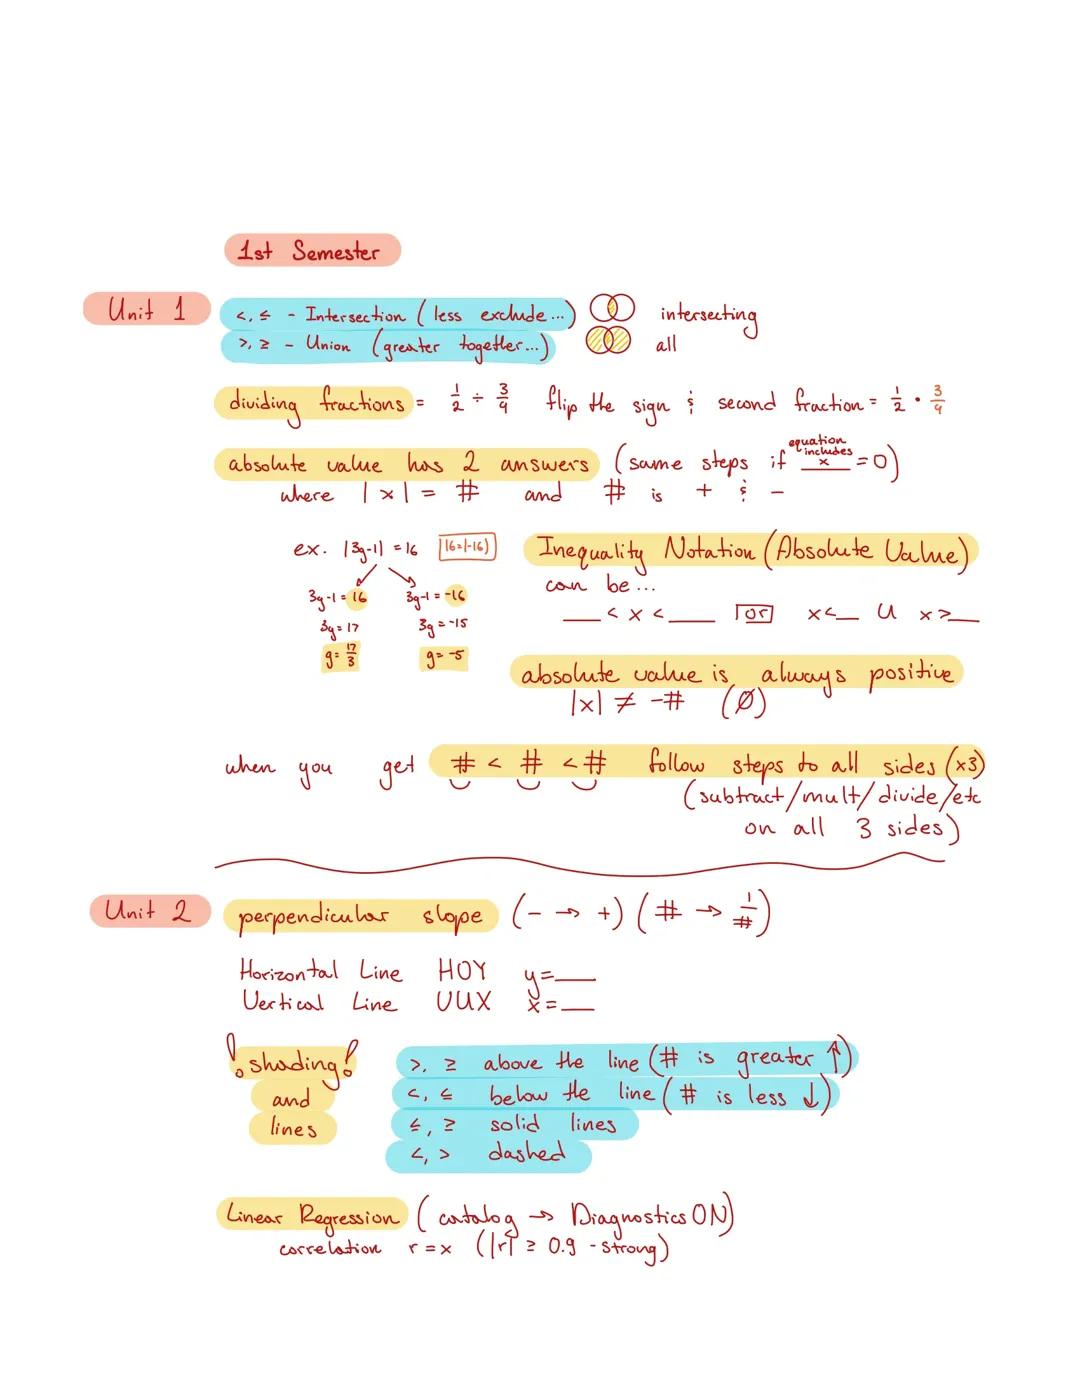 1st Semester
Unit 1
<, ≤ - Intersection (less exclude...) intersecting
>, ≥ - Union (greater together...) all
dividing fractions = 1/2 ÷ 3/4 flip the sign & second fraction = 1/2 · 3/4
absolute value has 2 answers (same steps if equation includes x = 0)
where |x| = # and # is + & -
ex. |3y-1| = 16 16=(-16)
3y-1 = 16 3y-1 = -16
3y = 17 3y = -15
y = 17/3 y = -5
Inequality Notation (Absolute Value)
can be...
___ < x < ___ or x < __ U x > __
absolute value is always positive
|x| ≠ -# (Ø)
when you get # < # < # follow steps to all sides (x3)
(subtract/mult/divide/etc
on all 3 sides)
Unit 2
perpendicular slope (- → +) (# → 1/#)
Horizontal Line HOY y = ___
Vertical Line VUX x = ___
! shading!
and
lines
>, ≥ above the line (# is greater ↑)
<, ≤ below the line (# is less ↓)
≤, ≥ solid lines
<, > dashed
Linear Regression (catalog → Diagnostics ON)
correlation r = x (|r| ≥ 0.9 - strong)